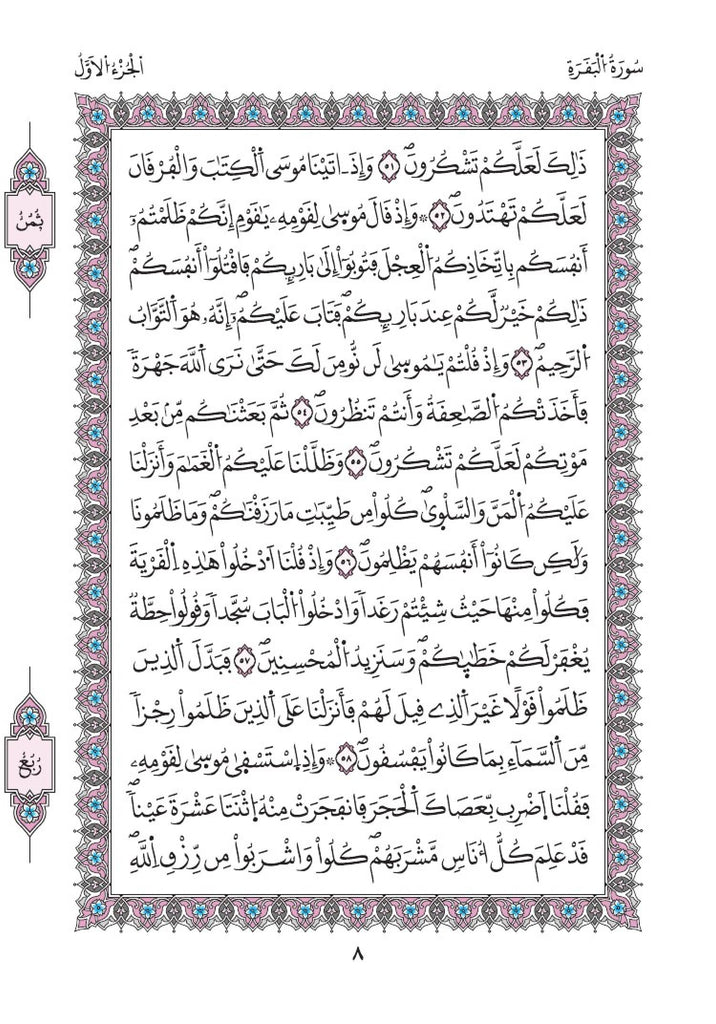 سُورَةُ الْبَقَرَةِ
الْجُزْءُ الْأَوَّلُ
ذَٰلِكَ لَعَلَّكُمْ تَشْكُرُونَ ۖ ٥١ وَإِذَ اٰتَيْنَا مُوسَى اَ۬لْكِتَٰبَ وَالْفُرْقَانَ
لَعَلَّكُمْ تَهْتَدُونَ ۖ ٥٢ ۞ وَإِذْ قَالَ مُوسَىٰ لِقَوْمِهِۦ يَٰقَوْمِ إِنَّكُمْ ظَلَمْتُمُۥٓ
أَنفُسَكُم بِاتِّخَاذِكُمُ اُ۬لْعِجْلَ فَتُوبُوٓاْ إِلَىٰ بَارِئِكُمْ فَاقْتُلُوٓاْ أَنفُسَكُمْ ۖ
ذَٰلِكُمْ خَيْرٌ لَّكُمْ عِندَ بَارِئِكُمْ ۖ فَتَابَ عَلَيْكُمُۥٓ ۖ إِنَّهُۥ هُوَ اَ۬لتَّوَّابُ
اُ۬لرَّحِيمُ ۖ ٥٣ وَإِذْ قُلْتُمْ يَٰمُوسَىٰ لَن نُّومِنَ لَكَ حَتَّىٰ نَرَى اَ۬للَّهَ جَهْرَةً
فَأَخَذَتْكُمُ اُ۬لصَّٰعِقَةُ وَأَنتُمْ تَنظُرُونَ ۖ ٥٤ ثُمَّ بَعَثْنَٰكُم مِّنۢ بَعْدِ
مَوْتِكُمْ لَعَلَّكُمْ تَشْكُرُونَ ۖ ٥٥ وَظَلَّلْنَا عَلَيْكُمُ اُ۬لْغَمَٰمَ وَأَنزَلْنَا
عَلَيْكُمُ اُ۬لْمَنَّ وَالسَّلْوَىٰ ۖ كُلُواْ مِن طَيِّبَٰتِ مَا رَزَقْنَٰكُمْ ۖ وَمَا ظَلَمُونَا
وَلَٰكِن كَانُوٓاْ أَنفُسَهُمْ يَظْلِمُونَ ۖ ٥٦ وَإِذْ قُلْنَا اَ۟دْخُلُواْ هَٰذِهِ اِ۬لْقَرْيَةَ
فَكُلُواْ مِنْهَا حَيْثُ شِئْتُمْ رَغَداً وَادْخُلُواْ اُ۬لْبَابَ سُجَّداً وَقُولُواْ حِطَّةٌ
يُغْفَرْ لَكُمْ خَطَٰيَٰكُمْ ۖ وَسَنَزِيدُ اُ۬لْمُحْسِنِينَ ۖ ٥٧ فَبَدَّلَ اَ۬لذِينَ
ظَلَمُواْ قَوْلًا غَيْرَ اَ۬لذِے قِيلَ لَهُمْ فَأَنزَلْنَا عَلَى اَ۬لذِينَ ظَلَمُواْ رِجْزاً
مِّنَ اَ۬لسَّمَآءِ بِمَا كَانُواْ يَفْسُقُونَ ۖ ٥٨ ۞ وَإِذِ اِ۪سْتَسْقَىٰ مُوسَىٰ لِقَوْمِهِۦ
فَقُلْنَا اَ۪ضْرِب بِّعَصَاكَ اَ۬لْحَجَرَ فَانفَجَرَتْ مِنْهُ اُ۪ثْنَتَا عَشْرَةَ عَيْناً ۖ
قَدْ عَلِمَ كُلُّ أُنَاسٍ مَّشْرَبَهُمْ ۖ كُلُواْ وَاشْرَبُواْ مِن رِّزْقِ اِ۬للَّهِ
ثُمُنُ
رُبُعُ
٨